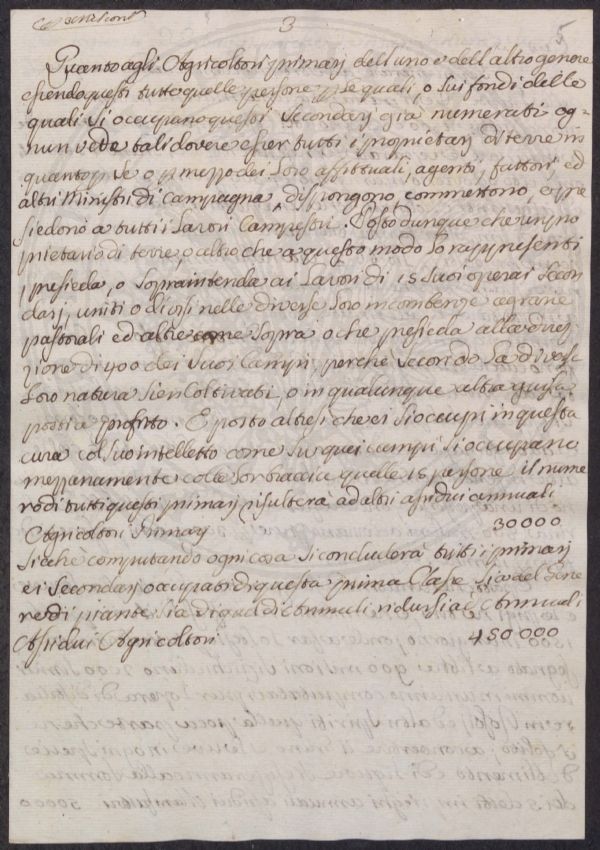 3
5
Quanto agli Agricoltori primarj dell'uno e dell'altro genere
essendo questi tutte quelle persone p le quali, o sui fondi delle
quali si occupano questi secondarj già numerati og-
nun vede tali dovere esser tutti i proprietarj di terre in
quanto p se o p mezzo dei loro affittuali, agenti, fattori, ed
altri Ministri di Campagna dispongono, commettono, e pre
siedono a tutti i lavori Campestri. Posto dunque che un pro
prietario di terre, o altro che a questo modo lo rappresenti
presieda, o sopraintenda ai lavori di 15 suoi operai secon
darj, uniti o divisi nelle diverse loro incombenze agrarie
pastorali ed altre come sopra o che presieda alla dire
zione di 400 dei suoi Campi, perché secondo la diversa
loro natura sien coltivati, o in qualunque altra guisa
posti a profitto. E posto altresì che ei si occupi in questa
cura col suo intelletto come su quei campi si occupano
mezzanamente colle lor braccia quelle 15 persone il nume
ro di tutti questi primarj risulterà ad altri assidui annuali
Agricoltori Primarj 30000
Sicché computando ogni cosa si concluderà tutti i primarj
e i secondarj occupati di questa prima Classe sia del gene
re di piante sia di quel di Animali ridursi ad Annuali
Assidui Agricoltori 480000